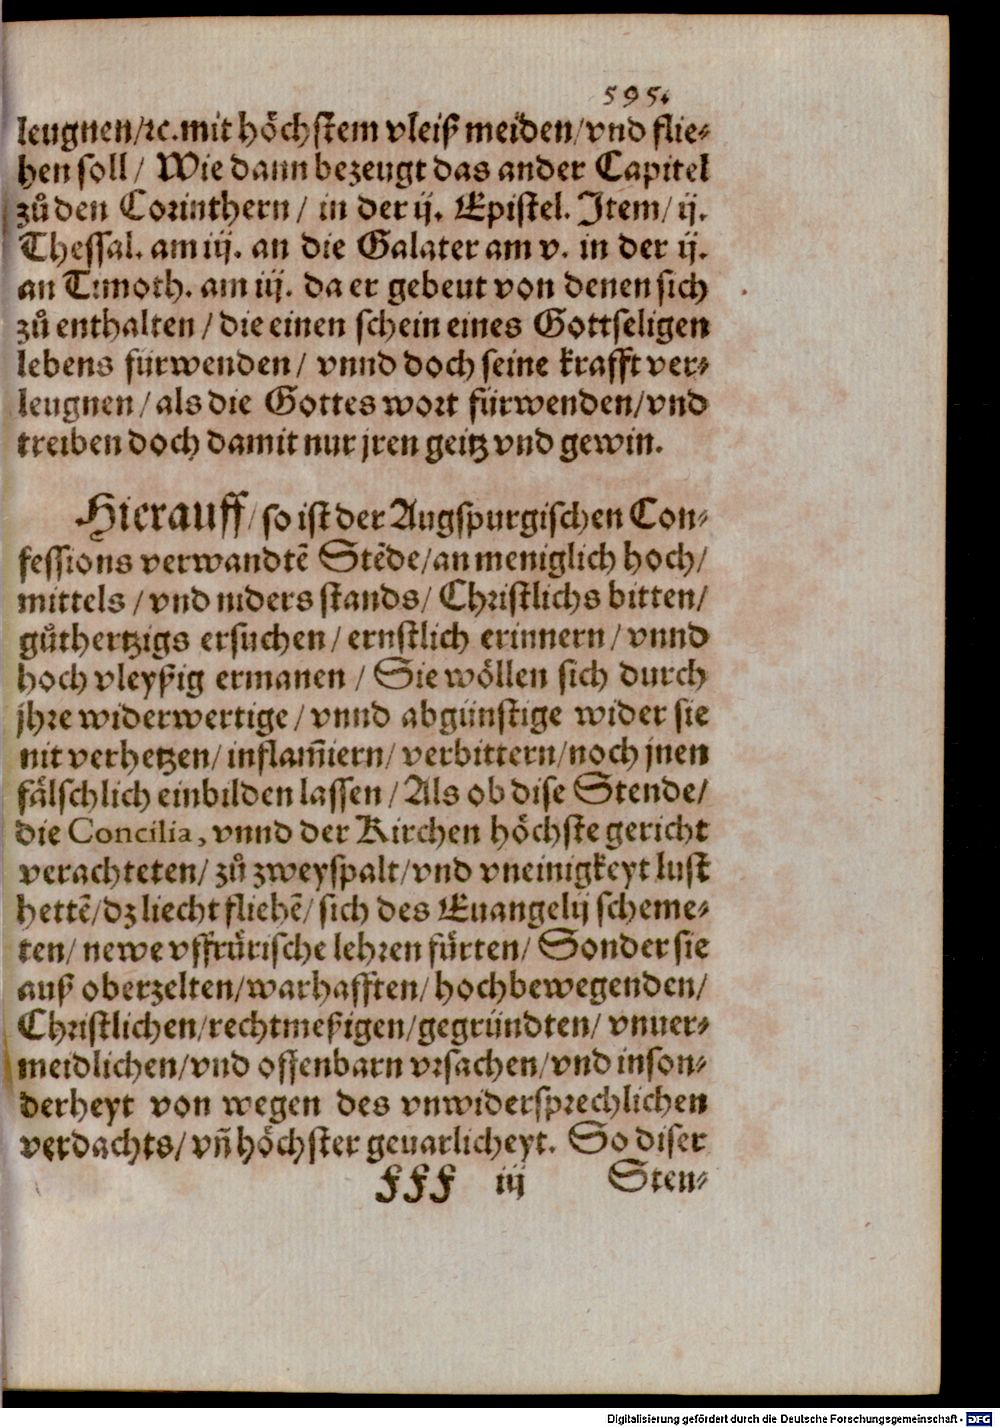 595.
leugnen/ꝛc. mit hoͤchstem vleiß meiden/vnd flie-
hen soll/ Wie dann bezeugt das ander Capitel
zů den Corinthern/ in der ij. Epistel. Item/ ij.
Thessal. am iij. an die Galater am v. in der ij.
an Timoth. am iij. da er gebeut von denen sich
zů enthalten/ die einen schein eines Gottseligen
lebens fürwenden/ vnnd doch seine krafft ver-
leugnen/ als die Gottes wort fürwenden/vnd
treiben doch damit nur jren geitz vnd gewin.
Hierauff/ so ist der Augspurgischen Con-
fessions verwandtē Stēde/an meniglich hoch/
mittels/ vnd niders stands/ Christlichs bitten/
gůthertzigs ersuchen/ ernstlich erinnern/ vnnd
hoch vleyßig ermanen/ Sie woͤllen sich durch
jhre widerwertige/ vnnd abgünstige wider sie
nit verhetzen/ inflam̄iern/ verbittern/noch jnen
faͤlschlich einbilden lassen/ Als ob dise Stende/
die Concilia, vnnd der Kirchen hoͤchste gericht
verachteten/ zů zweyspalt/vnd vneinigkeyt lust
hettē/dz liecht fliehē/ sich des Euangelij scheme-
ten/ newe vffrürische lehren fürten/ Sonder sie
auß oberzelten/warhafften/ hochbewegenden/
Christlichen/rechtmeßigen/gegründten/ vnuer-
meidlichen/vnd offenbarn vrsachen/vnd inson-
derheyt von wegen des vnwidersprechlichen
verdachts/ vn̄ hoͤchster geuarlicheyt. So diser
fff iij Sten-
Digitalisierung gefördert durch die Deutsche Forschungsgemeinschaft - DFG